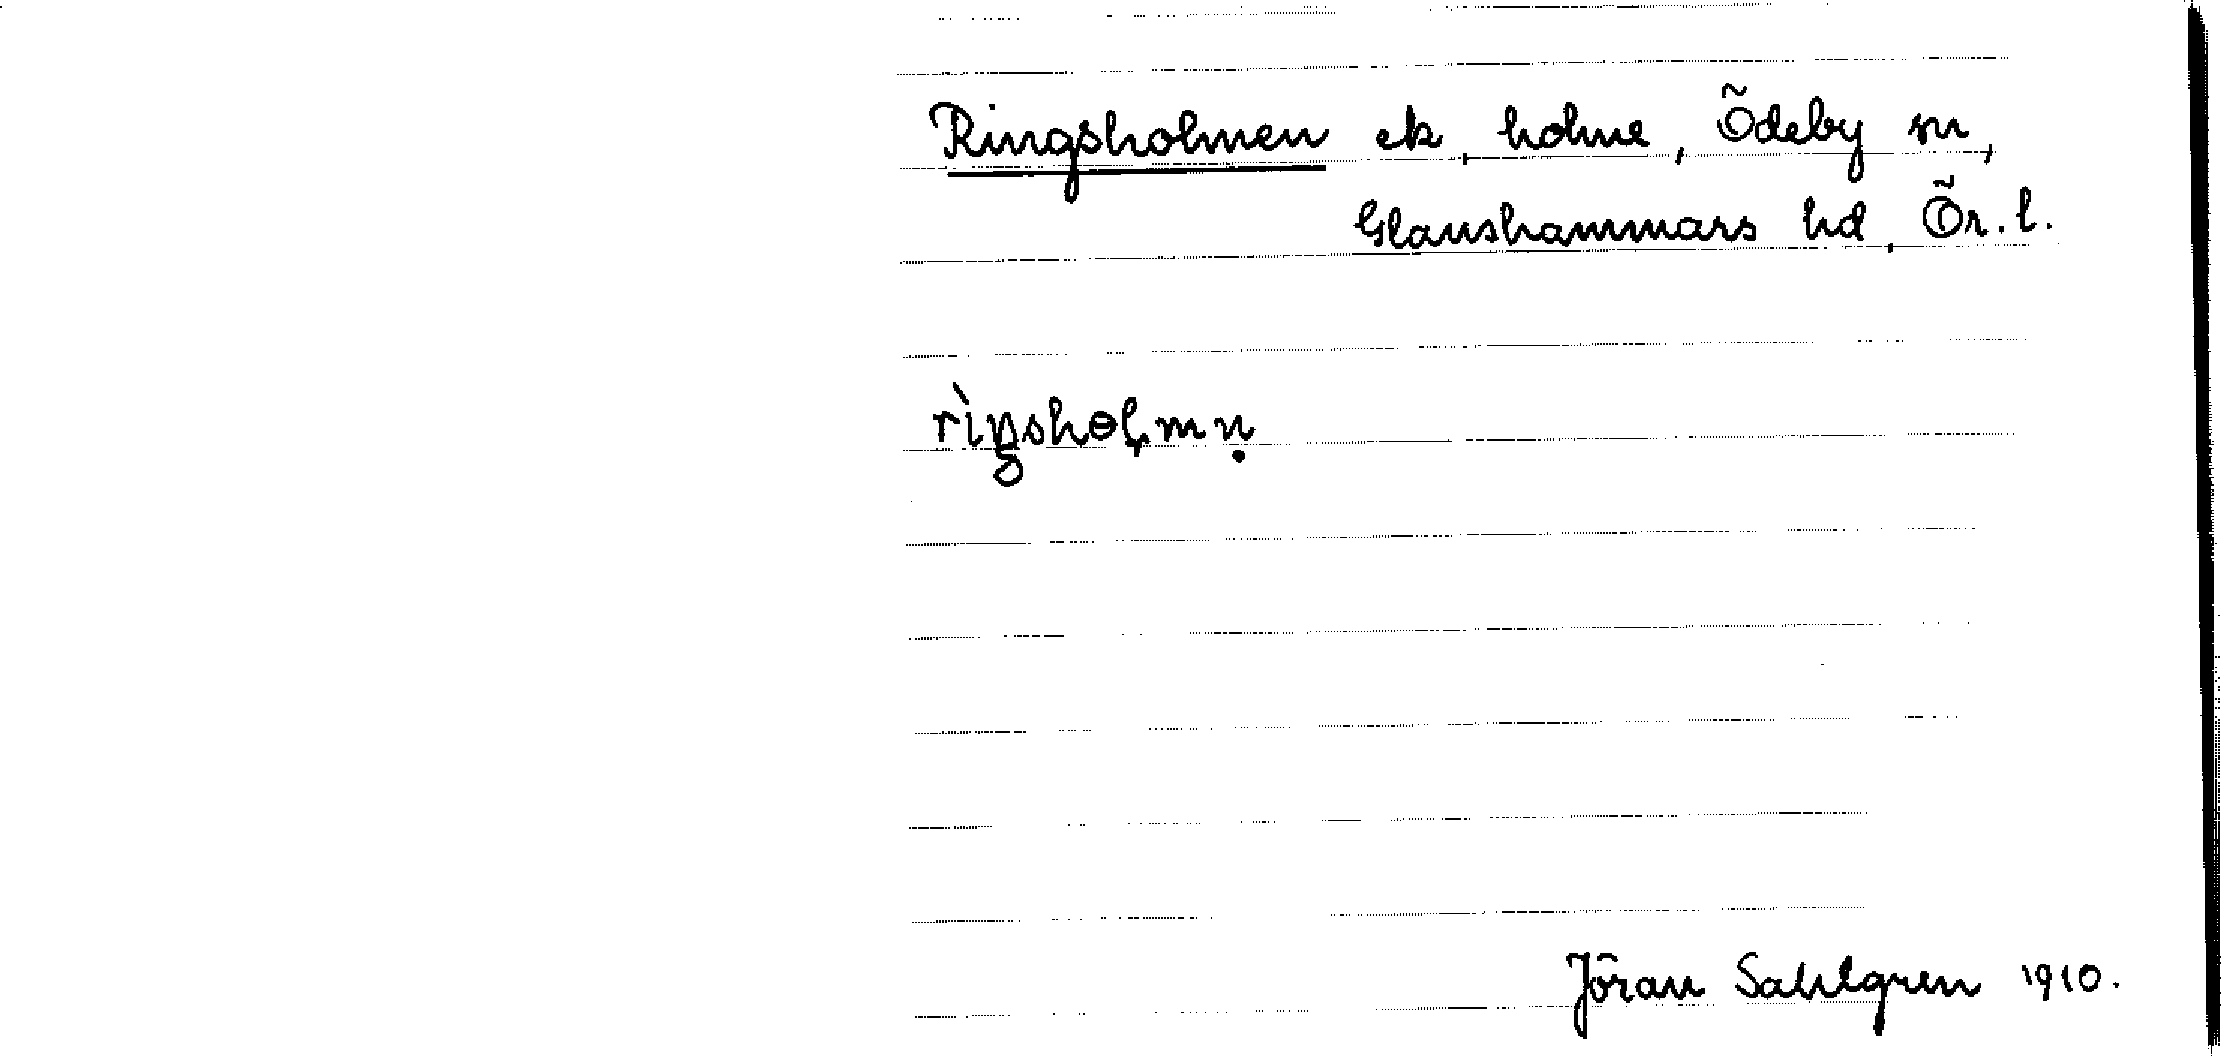 Ringsholmen ek, holme, Ödeby sn,
Glanshammars hd, Ör. l.
rìŋshɵļmṇ
Jöran Sahlgren 1910.